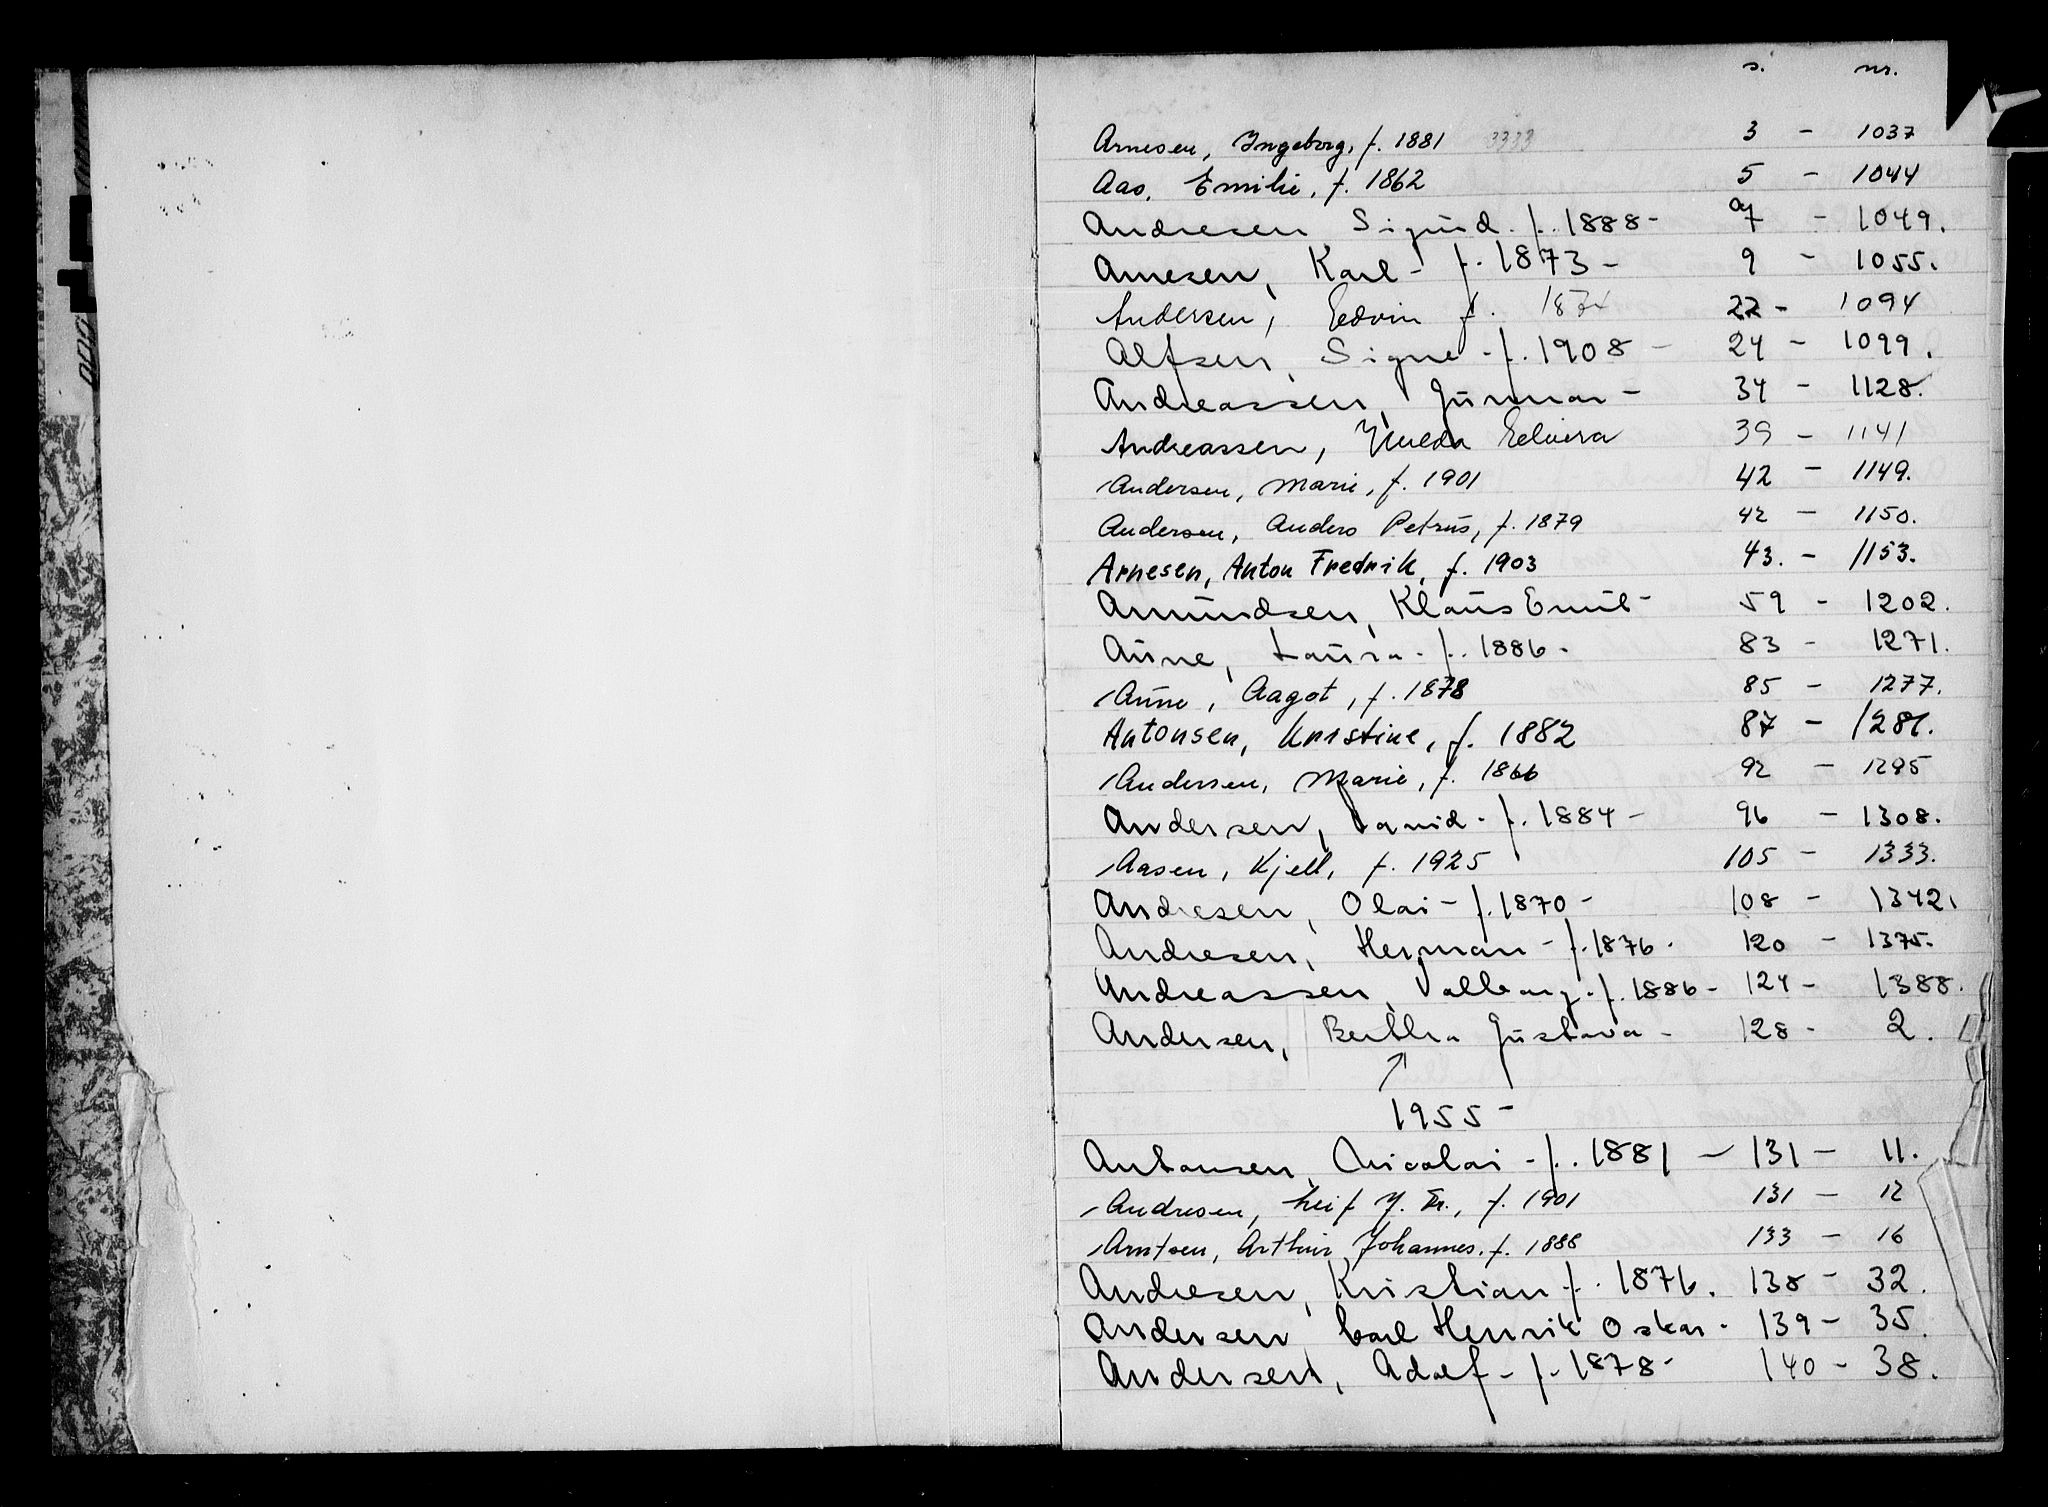 s. nr.
Arnesen, Ingeborg, f. 1881 3333 3 - 1037
Aas, Emilie, f. 1862 5 - 1044
Andresen Sigurd. f. 1888- 7 - 1049.
Arnesen, Karl - f. 1873 - 9 - 1055.
Andersen, Edvin f. 22 - 1094
Alfsen, Signe - f. 1908 - 24 - 1099.
Andreassen, Gunnar - 34 - 1128.
Andreassen, Hulda Elvira 39 - 1141
Andersen, Marie, f. 1901 42 - 1149.
Andersen, Anders Petrus, f. 1879 42 - 1150.
Arnesen, Anton Fredrik, f. 1903 43. - 1153.
Amundsen, Klaus Emil - 59 - 1202.
Aune, Laura - f. 1886 - 83 - 1271.
Aune, Aagot, f. 1878 85 - 1277.
Antonsen, Kristine, f. 1882 87 - 1281.
Andersen, Marie, f. 1866 92 - 1295
Andersen, David - f. 1884 - 96 - 1308.
Aasen, Kjell, f. 1925 105 - 1333.
Andresen, Olai - f. 1870 - 108 - 1342.
Andresen, Herman - f. 1876. 120 - 1375.
Andreassen, Valborg - f. 1886 - 124 - 1388.
Andersen, Berthea Gustava - 128 - 2.
1955 -
Antonsen, Nicolai - f. 1881 - 131 - 11.
Andresen, Leif J. Fr., f. 1901 131 - 12
Arntsen, Arthur Johannes, f. 1888 133 - 16
Andresen, Kristian f. 1876. 138 - 32.
Andersen Carl Henrik Oskar - 139 - 35.
Andersen, Adolf - f. 1878 - 140 - 38.